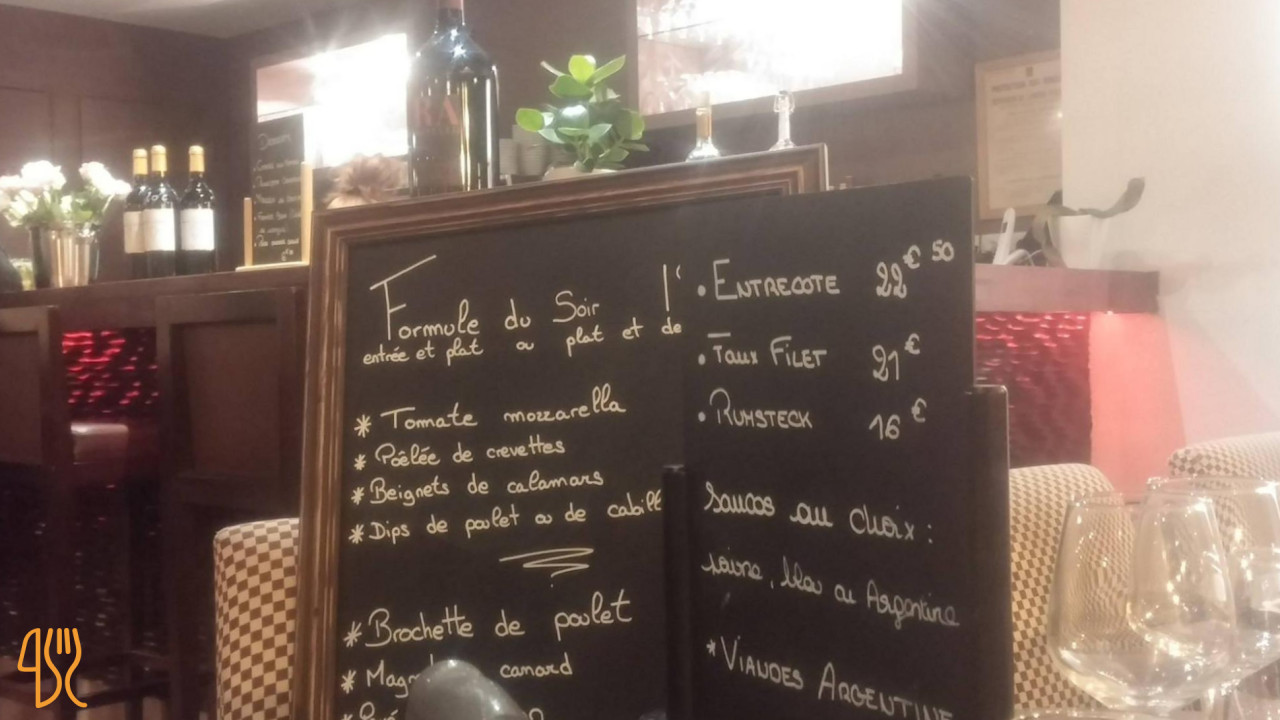 Formule du Soir l'
entrée et plat ou plat et de
* Tomate mozzarella
* Poêlée de crevettes
* Beignets de calamars
* Dips de poulet ou de cabill
* Brochette de poulet
* Mag canard
• ENTRECOTE 22€50
• Faux FILET 21€
• RUMSTECK 16€
Sauces au choix :
bleu ou Argentine
* VIANDES ARGENTINE
Desserts